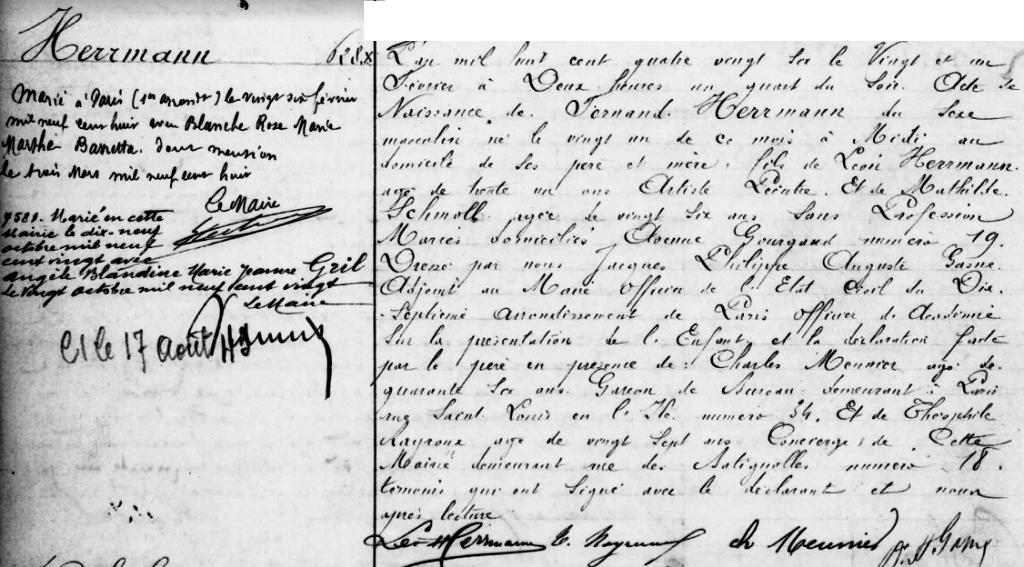 Herrmann
628
Marié à Paris (1er arrondt) le vingt six février
mil neuf cent huit avec Blanche Rose Marie
Marthe Barretta. Dont mention
le trois Mars mil neuf cent huit
Le Maire
Marié en cette
Mairie le dix-neuf
octobre mil neuf
cent vingt avec
Angèle Blandine Marie Jeanne Gril
Le vingt octobre mil neuf cent vingt
Le Maire
le 17 Août
L'an mil huit cent quatre vingt six le Vingt et un
Février à Deux heures un quart du Soir. Acte de
Naissance de Fernand Herrmann du Sexe
masculin né le vingt un de ce mois à Midi au
domicile de ses père et mère, fils de Léon Herrmann
agé de trente un ans Artiste Peintre. Et de Mathilde
Schmoll agée de vingt six ans Sans Profession
Mariés domiciliés Avenue Gourgaud numéro 19.
Dressé par nous Jacques Philippe Auguste
Adjoint au Maire Officier de l'Etat Civil du Dix
Septième arrondissement de Paris Officier de Académie
Sur la présentation de l'Enfant et la déclaration faite
par le père en présence de: Charles Meunier agé de
quarante six ans. Garçon de Bureau demeurant à Paris
rue Saint Louis en l'Ile numéro 54. Et de Théophile
Rayroux age de vingt sept ans Concierge de Cette
Mairie demeurant rue des Batignolles numéro 18.
témoins qui ont signé avec le déclarant et nous
après lecture
Léon Herrmann Ch Meunier